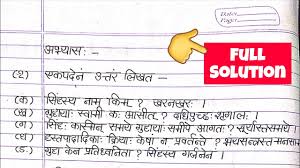 Date
Page
अभ्यासः –
FULL
SOLUTION
(१) एकपदेन उत्तरं लिखत –
(क) सिंहस्य नाम किम् ? खरनखरः ।
(ख) गुहायाः स्वामी कः आसीत् ? दधिपुच्छः शृगालः ।
(ग) सिंहः कस्मिन् समये गुहायाः समीपे आगतः ? सूर्यास्तसमये
(घ) हस्तपादादिकाः क्रियाः केषां न प्रवर्तन्ते ? भयसन्त्रस्तमनसां
(ङ) गुहा केन प्रतिध्वनिता ? सिंहस्य गर्जनेन ।